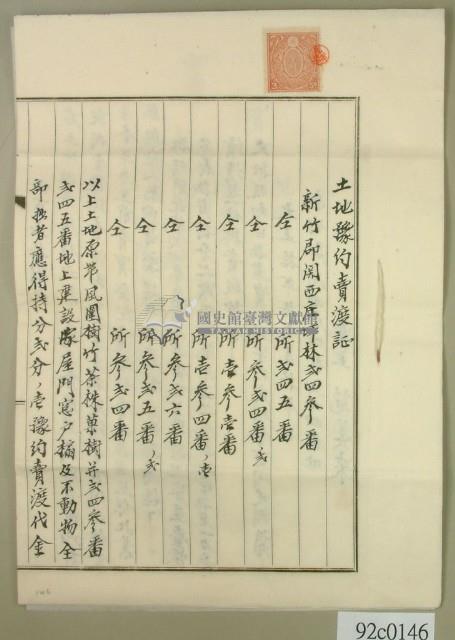 土地豫約賣渡証
新竹郡関西庄 林弍四參番
仝 所弍四五番
仝 所參弍四番ノ弍
仝 所壱參壱番
仝 所壱參四番ノ壱
仝 所參弍六番
仝 所參弍五番ノ弍
仝 所參弍四番
以上土地原帯風圍樹竹茶株菓樹并弍四參番
弍四五番地上建設 屋門窓户 及不動物全
部拙者應得持分弍分ノ壱豫約賣渡代金
國史館臺灣文獻館
TAIWAN HISTORICA
92c0146